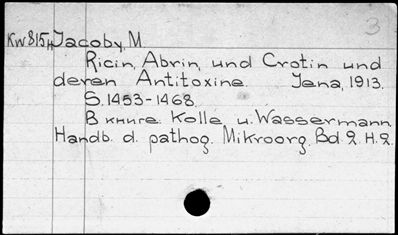 3
Kw815н Jacoby, M
Ricin, Abrin, und Crotin und
deren Antitoxine Jena, 1913.
S. 1453-1468.
В книге: Kolle u. Wassermann
Handb. d. pathog. Mikroorg. Bd. 2. H. 2.